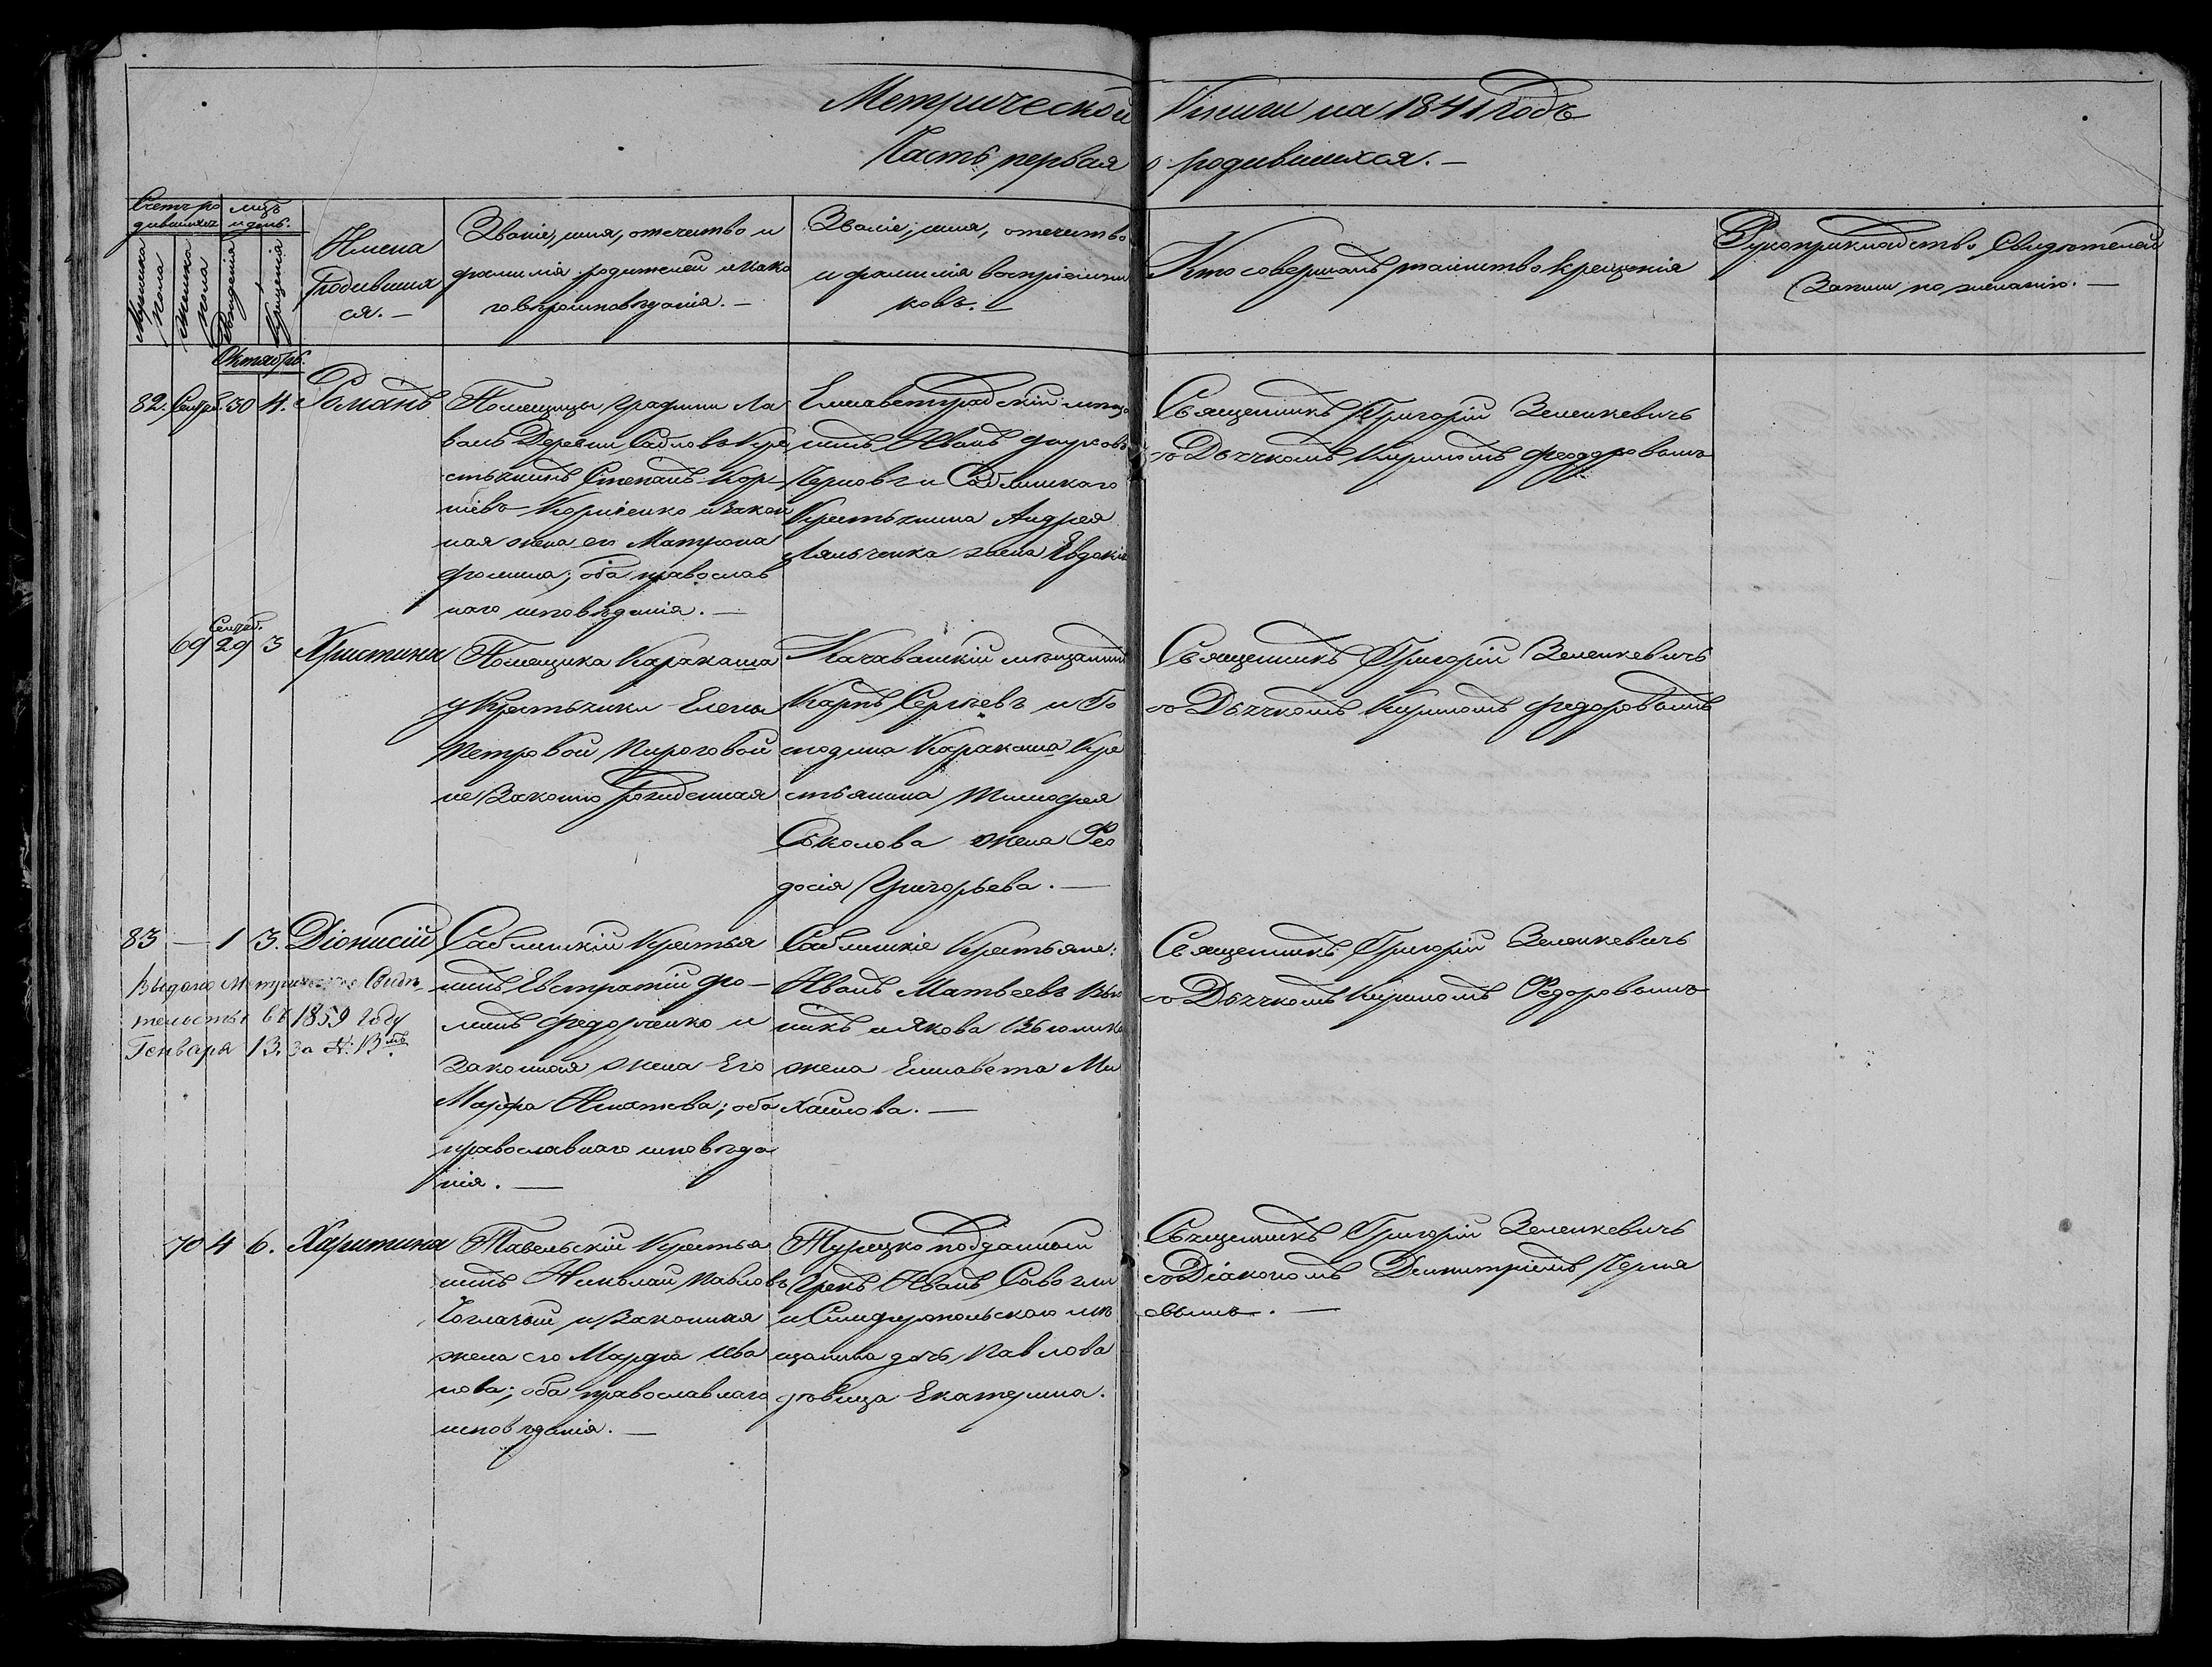 Метрической Книги на 1841 годъ
Часть первая о родившихся. —
Счетъ родившихся
мѣсъ и день.
Мужеска пола
Женска пола
Рожденія
Крещенія
Имена Родившихся. —
Званіе, имя, отечество и
фамилія родителей и како
го вѣроисповѣданія. —
Званіе, имя, отечество
и фамилія воспріемни
ковъ. —
Кто совершалъ таинство крещенія
Рукоприкладство Свидѣтелей
Записи по желанію. —
Октябрь.
82. Сентяб. 30 4. Романъ
Помещицы Графини Ла
валь Деревни Саблов Кре
стьянинъ Степанъ Кор
ніевъ Корніенко и Закон
ная жена его Матрона
Фомина; оба православ
наго исповѣданія. —
Елисаветградскій мѣща
нинъ Иванъ
и Саблинскаго
Крестьянина Андрея
Ляльченка жена Евдокія
Священникъ Григорій Зеленкевичь
съ Дьячкомъ Кириломъ Феодоровымъ
69 Сентяб. 29 3 Христина
Помещика Каракаша
у Крестьянки Елены
Петровой Пироговой
не Законно рожденная
Карасевскій мѣщанинъ
Карпъ Сергѣевъ и Го
сподина Каракаша Кре
стьянина Тимофея
Соколова жена Фео
досія Григорьева. —
Священникъ Григорій Зеленкевичь
съ Дьячкомъ Кириломъ Федоровымъ
83 — 1 3. Діонисій
Выдано Метрическое Свидѣ
тельство въ 1859 Году
Генваря 13. за №. 13мъ
Саблинскій Крестья
нинъ Евстратій Фо-
минъ Федорченко и
законная жена Его
Марфа Игнатева; оба
православнаго исповѣда
нія. —
Саблинскіе Крестьяне:
Иванъ Матвеевъ
и Якова
жена Елисавета Ми
хайлова. —
Священникъ Григорій Зеленкевичь
съ Дьячкомъ Кириломъ Федоровымъ
70 4 6. Харитина
Тавельскій Крестья
нинъ Николай Павловъ
и Законная
жена его Марфа Ива
нова; оба православнаго
исповѣданія. —
Турецко подданный
Грекъ Иванъ Савогли
и Симферопольскаго мѣ
щанина дочь Павлова
дѣвица Екатерина.
Священникъ Григорій Зеленкевичь
съ Діакономъ Димитріемъ Черня
вымъ. —